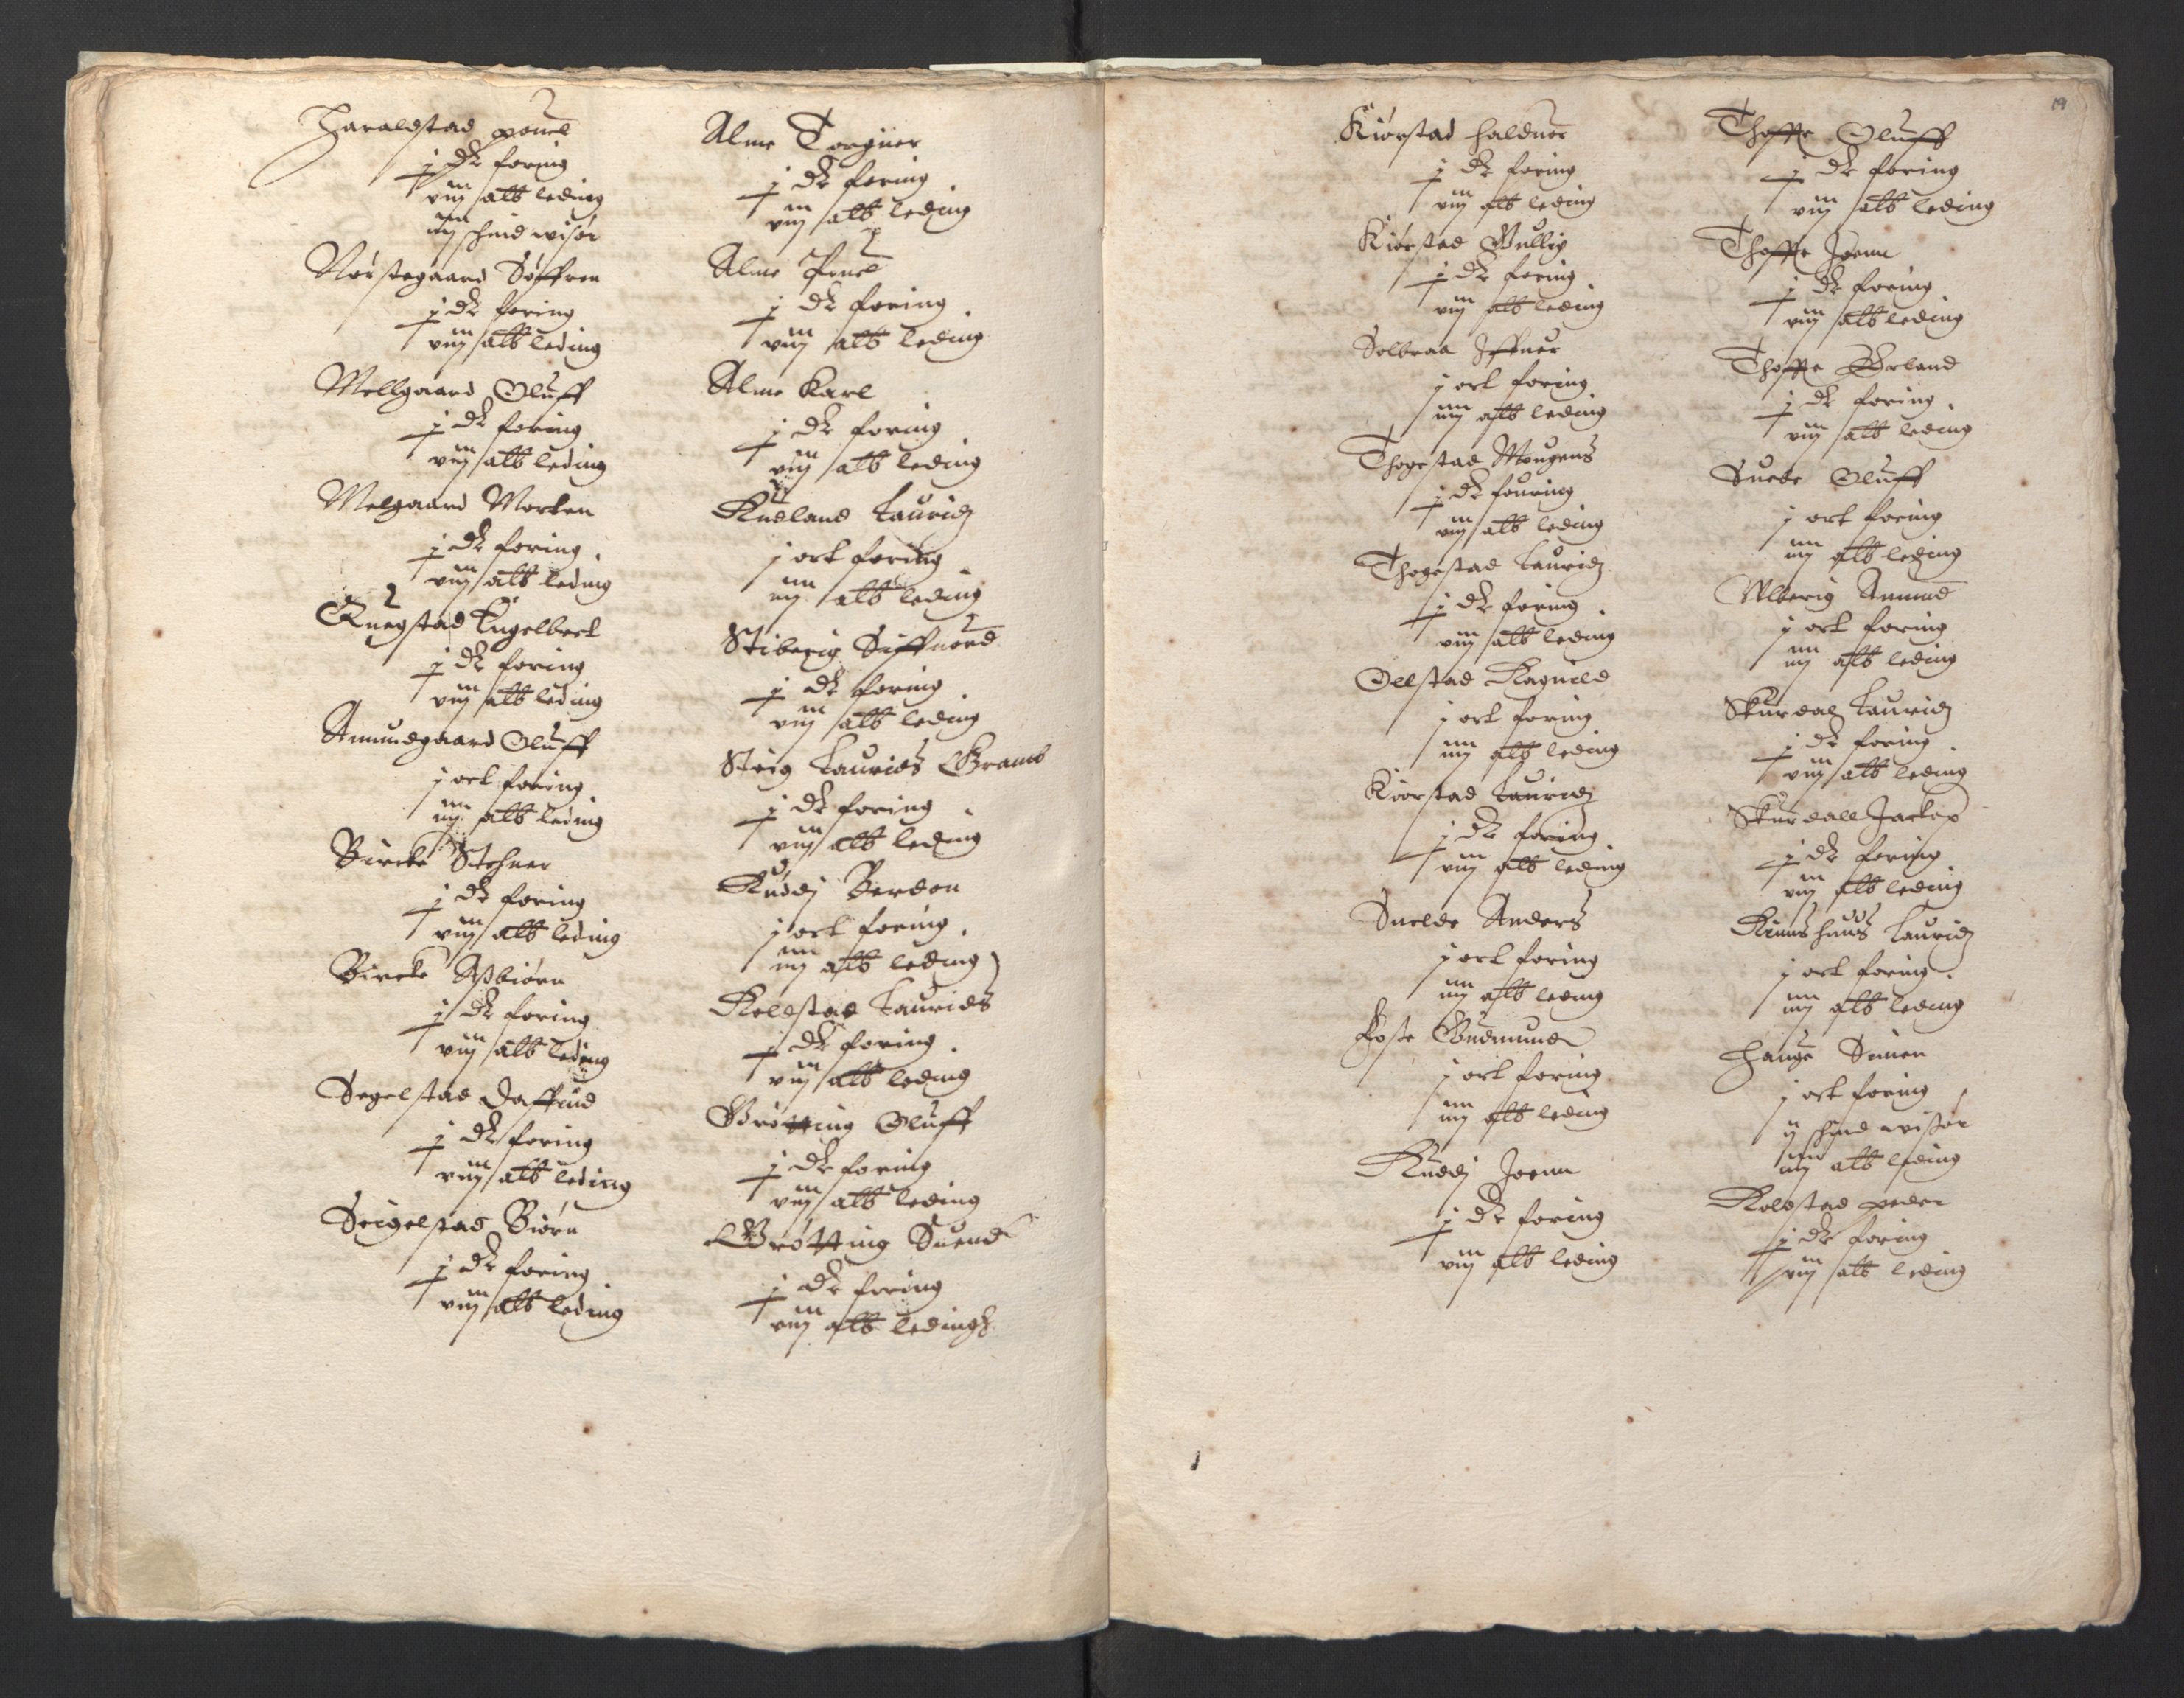 Haraldstad pouel
j dr foring
viij alb leding
iiij schind wisór
Nórstegaard Sóffren
j dr foring
viij alb leding
Mellgaard Oluff
j dr foring
viij alb leding
Melgaard Morten
j dr foring
viij alb leding
Quegstad Engelbret
j dr foring
viij alb leding
Amundgaard Oluff
j ort foring
iiij alb leding
Bircke Stehner
j dr foring
viij alb leding
Bircke Aßbiórn
j dr foring
viij alb leding
Segelstad Daffind
j dr foring
viij alb leding
Seigelstad Biórn
j dr foring
viij alb leding
Alme Torgiuer
j dr foring
viij alb leding
Alme Pouel
j dr foring
viij alb leding
Alme Karl
j dr foring
viij alb leding
Rudland Lauridz
j ort foring
iiij alb leding
Stiberig Siffuord
j dr foring
viij alb leding
Steig Laurids Gramb
j dr foring
viij alb leding
Ruddj Berdon
j ort foring
iiij alb leding
Koldstad Laurids
j dr foring
viij alb leding
Grótting Oluff
j dr foring
viij alb leding
Grótting Suend
j dr foring
viij alb leding
19
Kiórstad Halduor
j dr foring
viij alb leding
Kiórstad Gullig
j dr foring
viij alb leding
Solbraa Iffuer
j ort foring
iiij alb leding
Thogestad Mougens
j dr fouring
viij alb leding
Thogestad Lauridz
j dr foring
viij alb leding
Olstad Ragnild
j ort foring
iiij alb leding
Kiorstad Lauridz
j dr foring
viij alb leding
Suelde Anders
j ort foring
iiij alb leding
Foße Gudmund
j ort foring
iiij alb leding
Ruddj Joenn
j dr foring
viij alb leding
Thoffte Oluff
j dr foring
viij alb leding
Thoffte Joenn
j dr foring
viij alb leding
Thoffte Erland
j dr foring
viij alb leding
Suede Oluff
j ort foring
iiij alb leding
Ulberig Amund
j ort foring
iiij alb leding
Skurdal Lauridz
j dr foring
viij alb leding
Skurdall Jackop
j dr foring
viij alb leding
Lauridz
j ort foring
iiij alb leding
Hauge Simen
j ort foring
ij schind wißór
iiij alb leding
Koldstad peder
j dr foring
viij alb leding